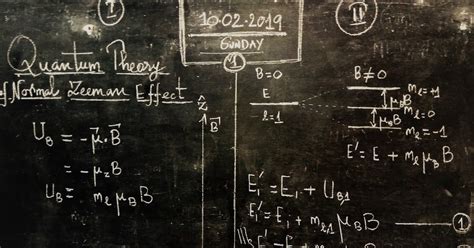 2
10-02-2019
SUNDAY
1
11
Quantum Theory
of Normal Zeeman Effect
U_B = -μ⃗.B⃗
= -μ_z B
U_B = m_ℓ μ_B B
ẑ
B⃗
B=0
B≠0
E
ℓ=1
m_ℓ=+1
μ_B B
m_ℓ=0
μ_B B
m_ℓ=-1
E' = E + m_ℓ μ_B B
E_i' = E_i + U_B1
E_i' = E_i + m_ℓ,1 μ_B B
1